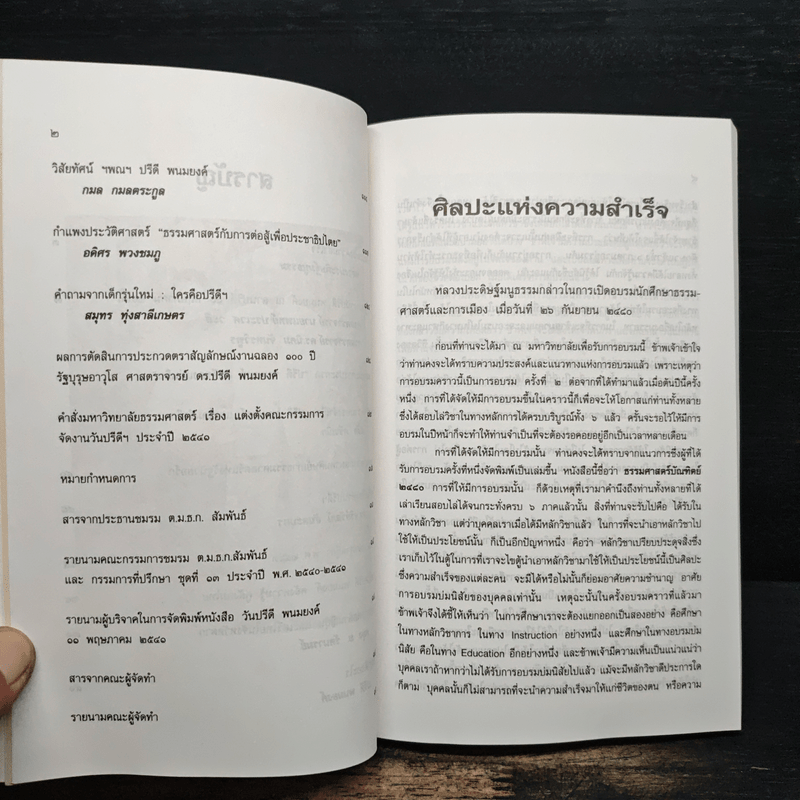 ๒
วิสัยทัศน์ ฯพณฯ ปรีดี พนมยงค์
กมล กมลตระกูล
กำแพงประวัติศาสตร์ "ธรรมศาสตร์กับการต่อสู้เพื่อประชาธิปไตย"
อดิศร พวงชมภู
คำถามจากเด็กรุ่นใหม่ : ใครคือปรีดีฯ
สมุทร ทุ่งสาลีเกษตร
ผลการตัดสินการประกวดตราสัญลักษณ์งานฉลอง ๑๐๐ ปี
รัฐบุรุษอาวุโส ศาสตราจารย์ ดร.ปรีดี พนมยงค์
คำสั่งมหาวิทยาลัยธรรมศาสตร์ เรื่อง แต่งตั้งคณะกรรมการ
จัดงานวันปรีดีฯ ประจำปี ๒๕๔๑
หมายกำหนดการ
สารจากประธานชมรม ต.ม.ธ.ก. สัมพันธ์
รายนามคณะกรรมการชมรม ต.ม.ธ.ก.สัมพันธ์
และ กรรมการที่ปรึกษา ชุดที่ ๑๓ ประจำปี พ.ศ.๒๕๔๐-๒๕๔๑
รายนามผู้บริจาคในการจัดพิมพ์หนังสือ วันปรีดี พนมยงค์
๑๑ พฤษภาคม ๒๕๔๑
สารจากคณะผู้จัดทำ
รายนามคณะผู้จัดทำ
ศิลปะแห่งความสำเร็จ
หลวงประดิษฐ์มนูธรรมกล่าวในการเปิดอบรมนักศึกษาธรรม-
ศาสตร์และการเมือง เมื่อวันที่ ๒๖ กันยายน ๒๔๘๐
ก่อนที่ท่านจะได้มา ณ มหาวิทยาลัยเพื่อรับการอบรมนี้ ข้าพเจ้าเข้าใจ
ว่าท่านคงจะได้ทราบความประสงค์และแนวทางแห่งการอบรมแล้ว เพราะเหตุว่า
การอบรมคราวนี้เป็นการอบรม ครั้งที่ ๒ ต่อจากที่ได้ทำมาแล้วเมื่อต้นปีนี้ครั้ง
หนึ่ง การที่ได้จัดให้มีการอบรมขึ้นในคราวนี้ก็เพื่อจะให้โอกาสแก่ท่านทั้งหลาย
ซึ่งได้สอบไล่วิชาในทางหลักการได้ครบบริบูรณ์ทั้ง ๖ แล้ว ครั้นจะรอไว้ให้มีการ
อบรมในปีหน้าก็จะทำให้ท่านจำเป็นที่จะต้องรอคอยอยู่อีกเป็นเวลาหลายเดือน
การที่ได้จัดให้มีการอบรมนั้น ท่านคงจะได้ทราบจากแนวการซึ่งผู้ที่ได้
รับการอบรมครั้งที่หนึ่งจัดพิมพ์เป็นเล่มขึ้น หนังสือนี้ชื่อว่า ธรรมศาสตร์บัณฑิตย์
๒๔๘๐ การที่ให้มีการอบรมนั้น ก็ด้วยเหตุที่เรามาคำนึงถึงท่านทั้งหลายที่ได้
เล่าเรียนสอบไล่ได้จนกระทั่งครบ ๖ ภาคแล้วนั้น สิ่งที่ท่านจะรับไปคือ ได้รับใน
ทางหลักวิชา แต่ว่าบุคคลเราเมื่อได้มีหลักวิชาแล้ว ในการที่จะนำเอาหลักวิชาไป
ใช้ให้เป็นประโยชน์นั้น ก็เป็นอีกปัญหาหนึ่ง คือว่า หลักวิชาเปรียบประดุจสิ่งซึ่ง
เราเก็บไว้ในตู้ในการที่เราจะไขตู้นำเอาหลักวิชามาใช้ให้เป็นประโยชน์นี้เป็นศิลปะ
ซึ่งความสำเร็จของแต่ละคน จะมีได้หรือไม่นั้นก็ย่อมอาศัยความชำนาญ อาศัย
การอบรมบ่มนิสัยของบุคคลเท่านั้น เหตุฉะนั้นในครั้งอบรมคราวที่แล้วมา
ข้าพเจ้าจึงได้ชี้ให้เห็นว่า ในการศึกษาเราจะต้องแยกออกเป็นสองอย่าง คือศึกษา
ในทางหลักวิชาการ ในทาง Instruction อย่างหนึ่ง และศึกษาในทางอบรมบ่ม
นิสัย คือในทาง Education อีกอย่างหนึ่ง และข้าพเจ้ามีความเห็นเป็นแน่แน่วว่า
บุคคลเราถ้าหากว่าไม่ได้รับการอบรมบ่มนิสัยไปแล้ว แม้จะมีหลักวิชาดีประการใด
ก็ตาม บุคคลนั้นก็ไม่สามารถที่จะนำความสำเร็จมาให้แก่ชีวิตของตน หรือความ